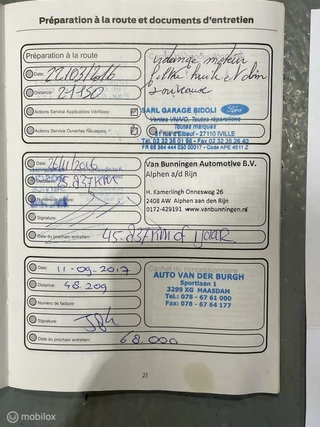 Préparation à la route et documents d'entretien
Préparation à la route
Date: 22/03/2016
Distance: 21150
Actions Service Applicables Vérifiées:
Actions Service Ouvertes Réussies:
vidange moteur
SARL GARAGE BIDOLI Ford
Ventes VN/VO, Toutes réparations
Toutes marques
27110 IVILLE
Tél. 02 32 35 01 80 - Fax 02 32 35 26 40
Date: 26/11/2016
Distance: 25.837 KM
Signature:
Van Bunningen Automotive B.V.
Alphen a/d Rijn
H. Kamerlingh Onnesweg 26
2408 AW Alphen aan den Rijn
0172-429191 www.vanbunningen.nl
Date du prochain entretien: 45.837 KM of 1 jaar
Date: 11-09-2017
Distance: 48.209
Numéro de facture
Signature:
AUTO VAN DER BURGH
Sportlaan 1
3299 XG MAASDAM
Tel.: 078 - 67 61 000
Fax: 078 - 67 64 177
Date du prochain entretien: 68.000
21
mobilox